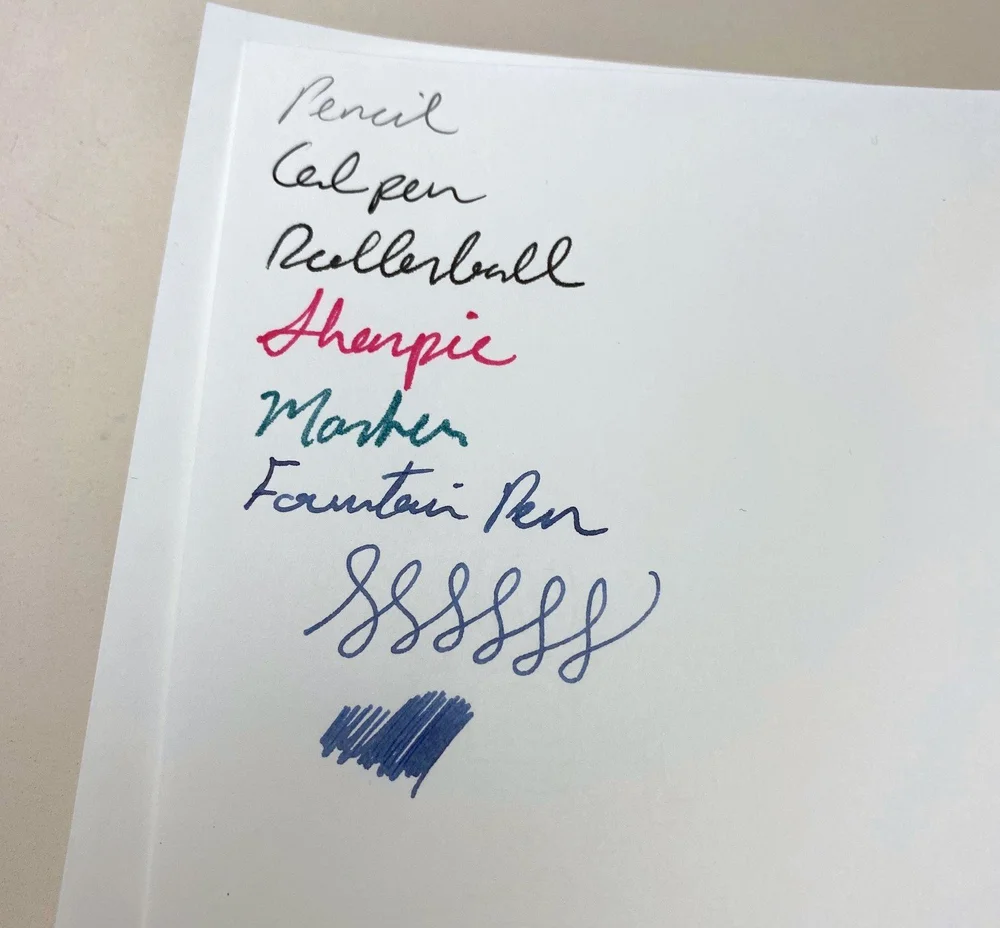 Pencil
Gel pen
Rollerball
Sharpie
Marker
Fountain Pen